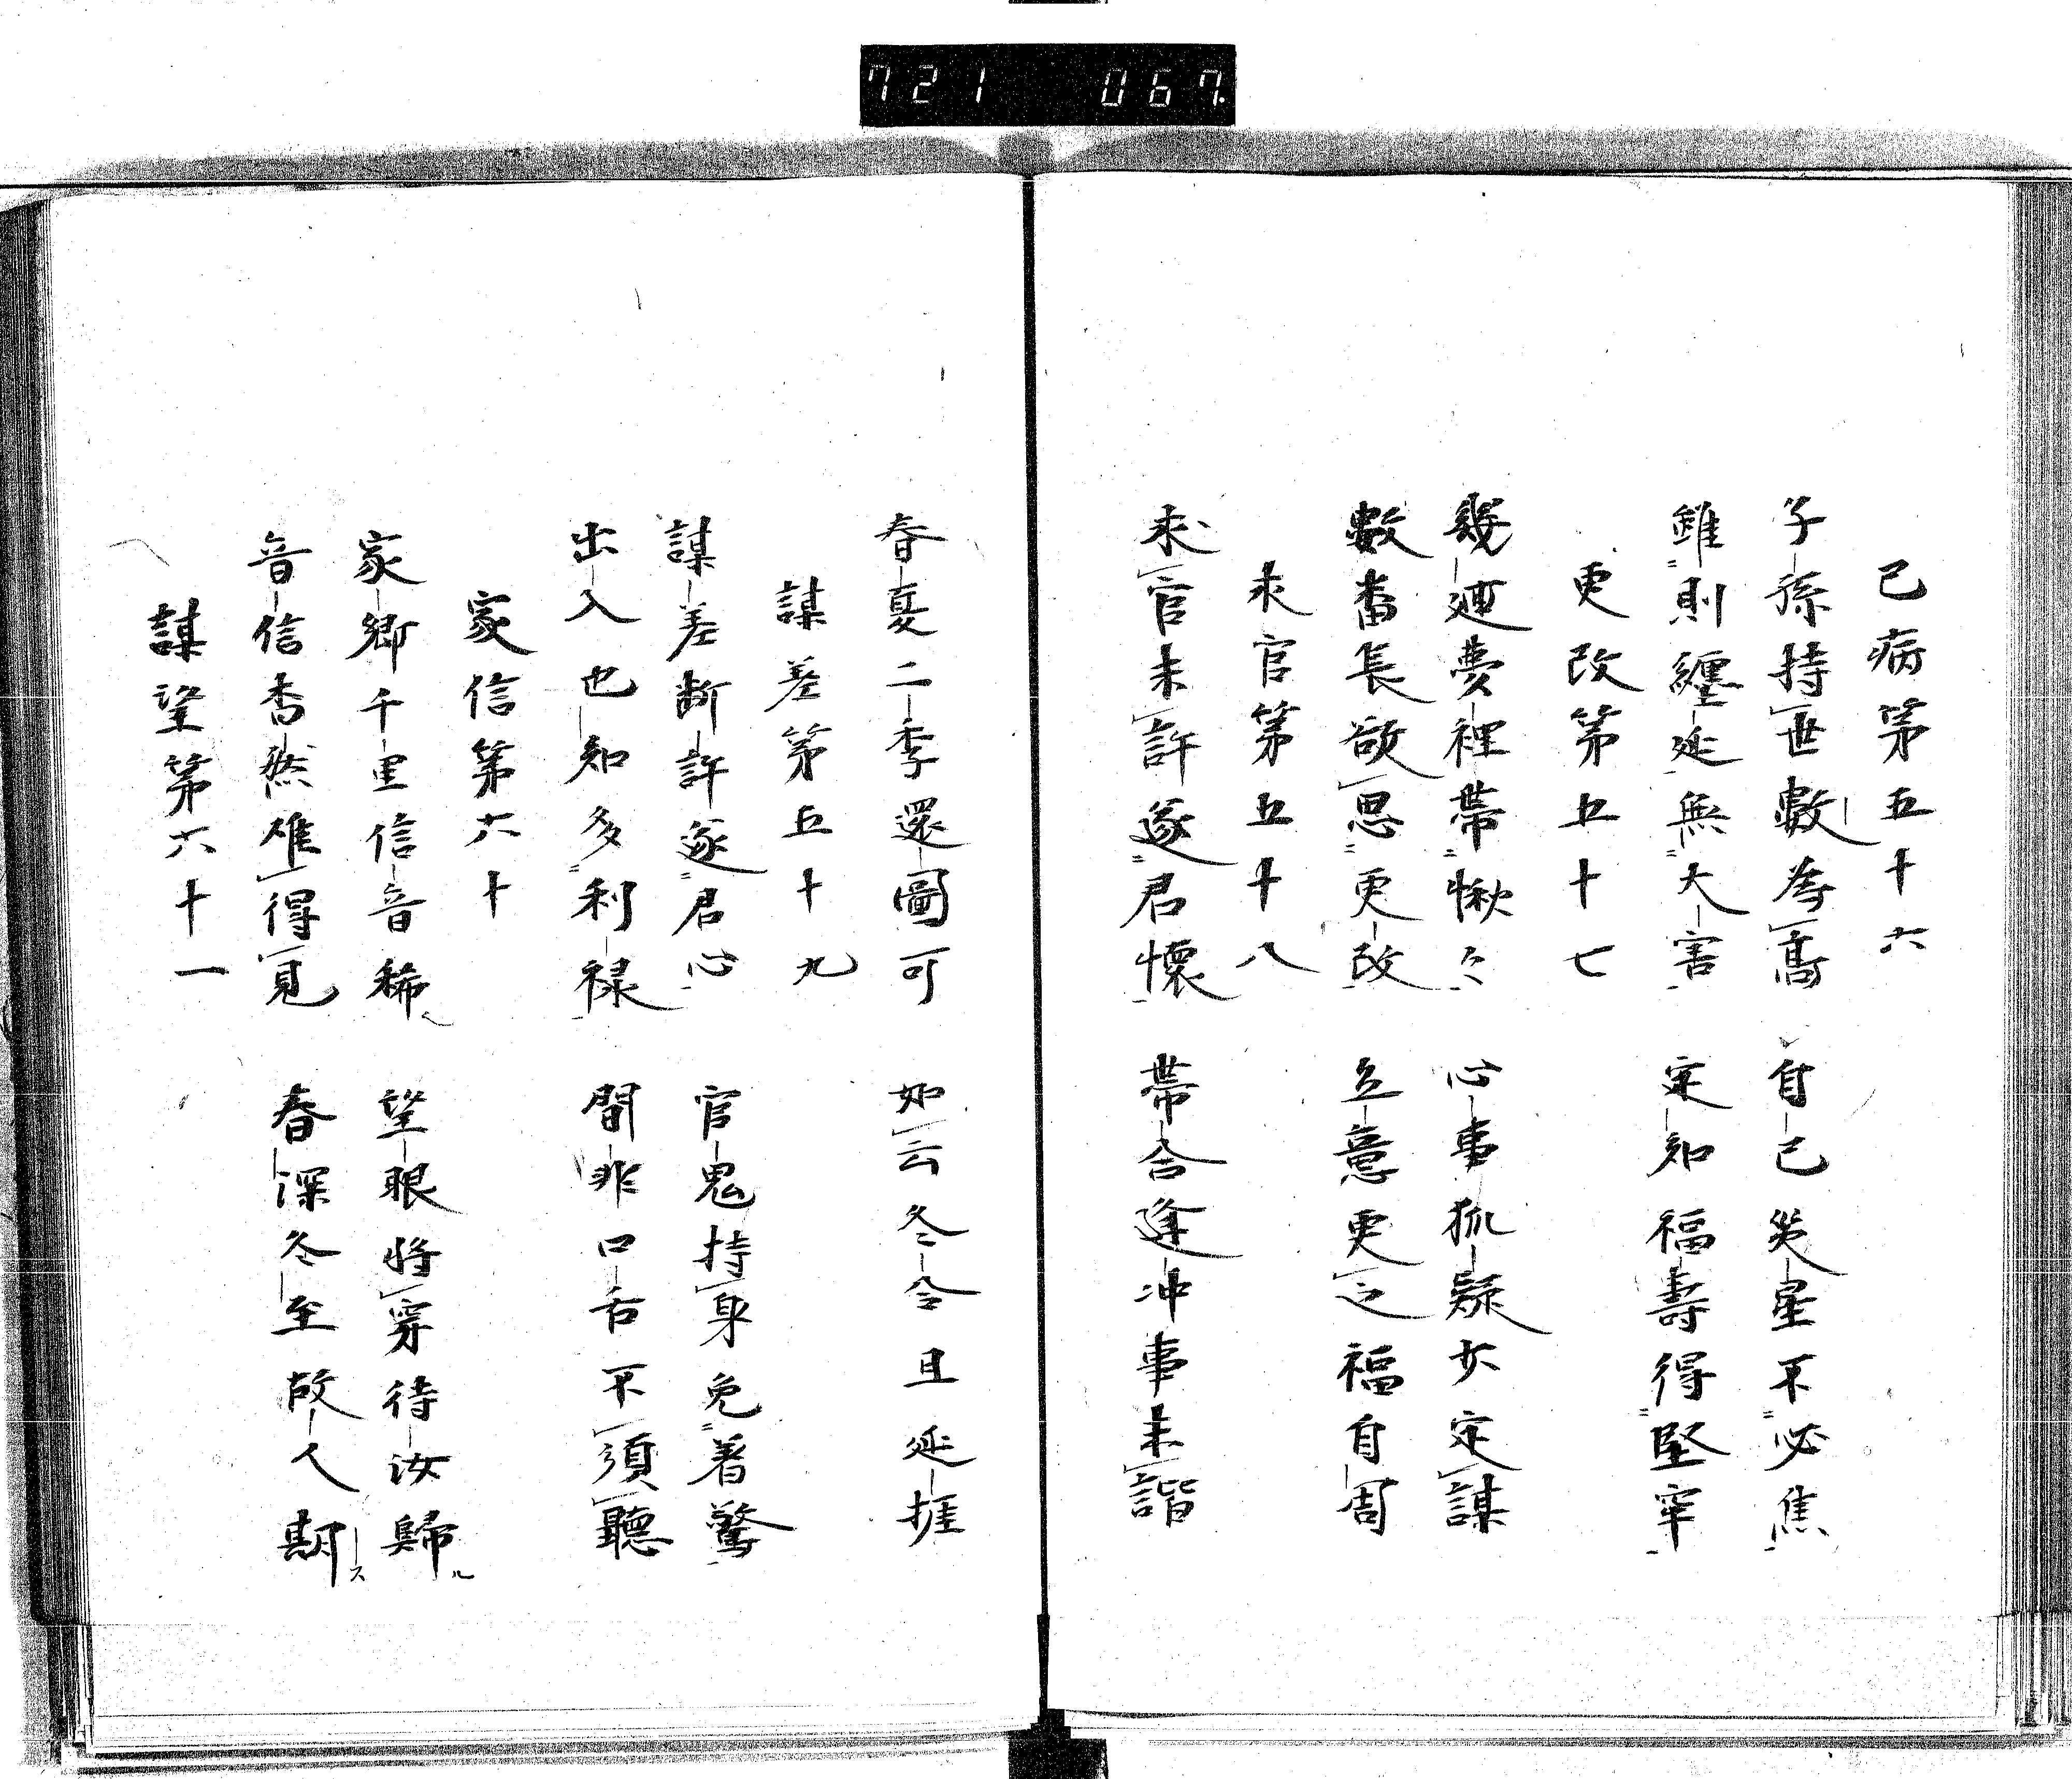 721 067.
己病第五十六
子孫持世數為高 自己災星不必焦
雖則纏延無大害 定知福壽得堅牢
更改第五十七
幾廻夢裡帶愀々 心事狐疑欠定謀
數畨長欲思更改 立意更之福自周
求官第五十八
求官未許遂君懷 帶合逢冲事未諧
春夏二季還圖可 如云冬令且延捱
謀差第五十九
謀差斷許遂君心 官鬼持身免著驚
出入也知多利祿 間非口舌不須聽
家信第六十
家鄉千里信音稀 望眼將穿待汝歸ル
音信杳然难得覓 春深冬至故人期ス
謀望第六十一